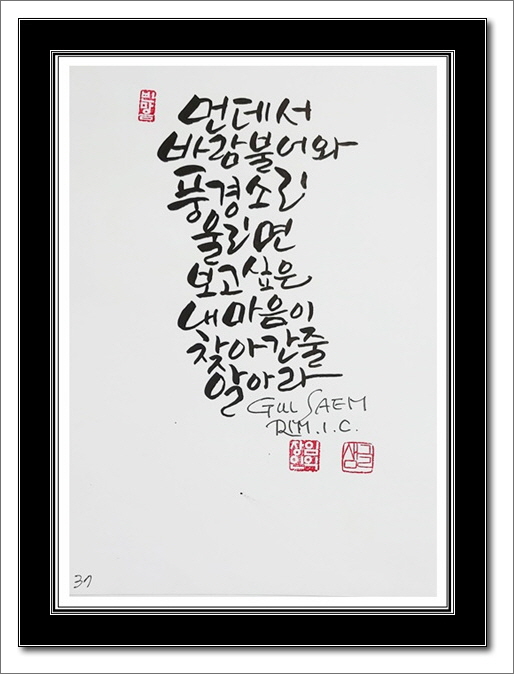 먼데서
바람불어와
풍경소리
울리면
보고싶은
내마음이
찾아간줄
알아라
GUL SAEM
RIM.I.C.
글샘
37